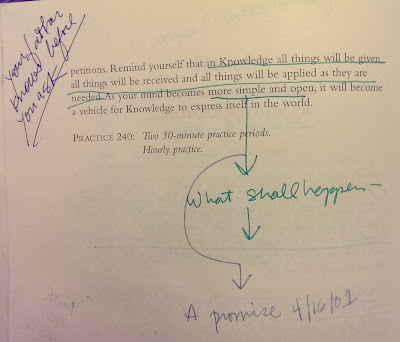 your father
knows before
you ask
petitions. Remind yourself that in Knowledge all things will be given,
all things will be received and all things will be applied as they are
needed. As your mind becomes more simple and open, it will become
a vehicle for Knowledge to express itself in the world.
PRACTICE 240: Two 30-minute practice periods.
Hourly practice.
What shall happen—
A promise 4/16/01